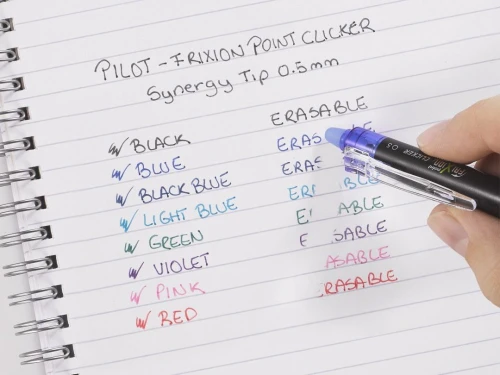 PILOT - FRIXION POINT CLICKER
Synergy Tip 0.5mm
ERASABLE
BLACK
BLUE ERAS BLE
BLACK BLUE ERAS
LIGHT BLUE ER BLE
GREEN E ABLE
VIOLET E SABLE
PINK ASABLE
RED RASABLE
FRIXION CLICKER 0.5